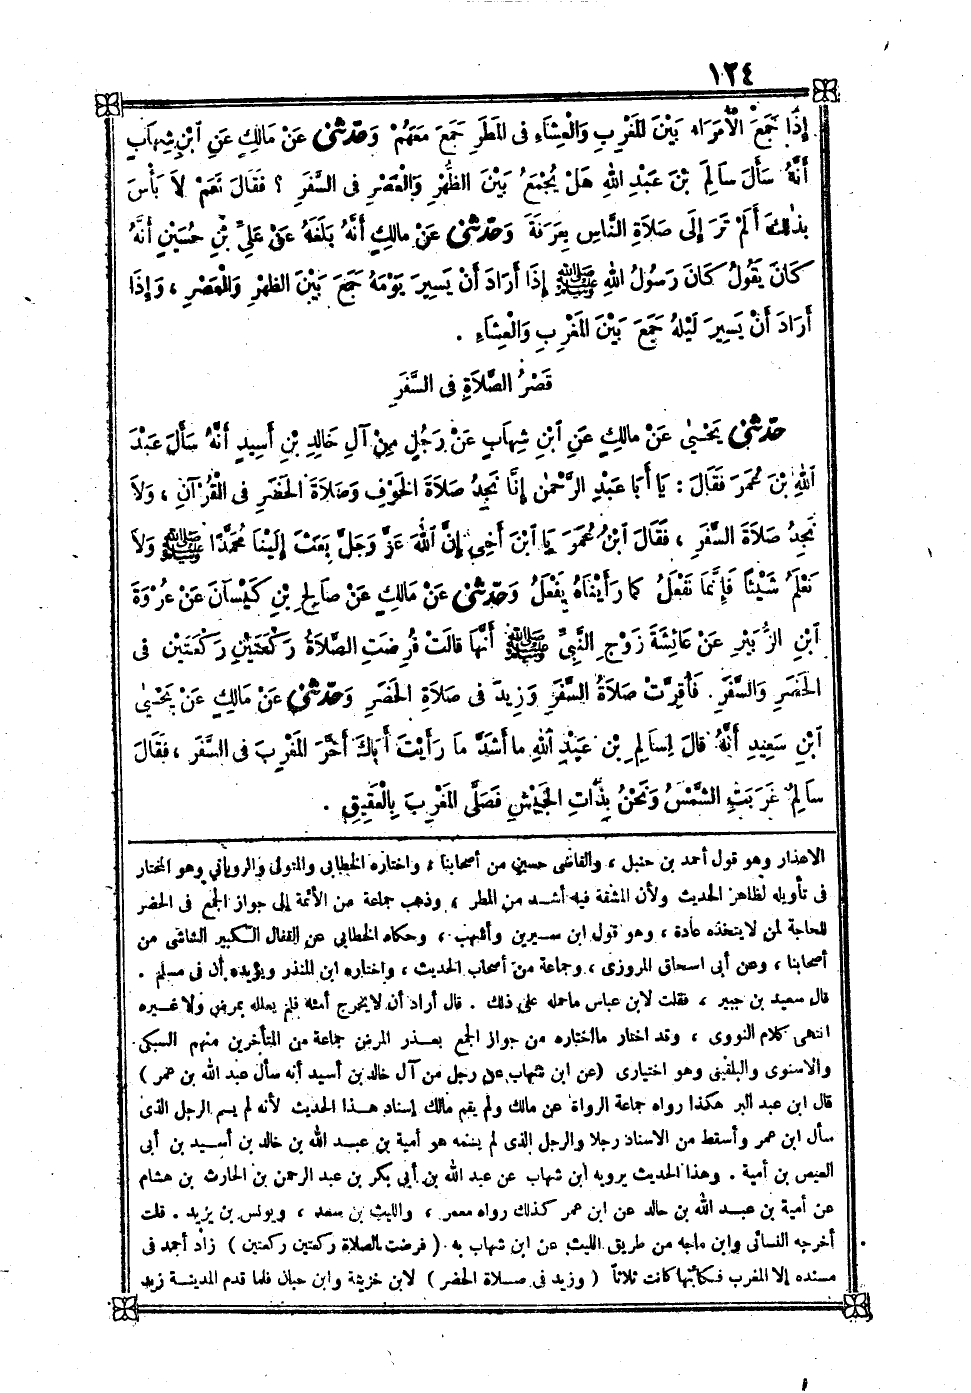 ١٢٤
إِذَا جَمَعَ الْأُمَرَاء بَيْنَ الْمَغْرِبِ وَالْعِشَاءِ فِى الْمَطَرِ جَمَعَ مَعَهُمْ وَحَدَّثَنِى عَنْ مَالِكٍ عَنِ ابْنِ شِهَابٍ
أَنَّهُ سَأَلَ سَالِمَ بْنَ عَبْدِ اللهِ هَلْ يُجْمَعُ بَيْنَ الظُّهْرِ وَالْعَصْرِ فِى السَّفَرِ ؟ فَقَالَ نَعَمْ لاَ بَأْسَ
بِذٰلِكَ أَلَمْ تَرَ إِلَى صَلاَةِ النَّاسِ بِعَرَفَةَ وَحَدَّثَنِى عَنْ مالِكٍ أَنَّهُ بَلَغَهُ عَنْ عَلِىِّ بْنِ حُسَيْنٍ أَنَّهُ
كَانَ يَقُولُ كَانَ رَسُولُ اللهِ ﷺ إِذَا أَرَادَ أَنْ يَسِيرَ يَوْمَهُ جَمَعَ بَيْنَ الظهْرِ وَالْعَصْرِ ، وَإِذَا
أَرَادَ أَنْ يَسِيرَ لَيْلَهُ جَمَعَ بَيْنَ الْمَغْرِبِ وَالْعِشَاءِ .
قَصْرُ الصَّلاَةِ فِى السَّفَرِ
حَدَّثَنِى يَحْيَىٰ عَنْ مالِكٍ عَنِ ابْنِ شِهَابٍ عَنْ رَجُلٍ مِنْ آلِ خَالِدِ بْنِ أَسِيدٍ أَنَّهُ سَأَلَ عَبْدَ
اللهِ بْنَ عُمَرَ فَقَالَ : يَا أَبَا عَبْدِ الرَّحْمٰنِ إِنَّا نَجِدُ صَلاَةَ الخَوْفِ وَصَلاَةَ الحَضَرِ فِى الْقُرْآنِ ، وَلاَ
نَجِدُ صَلاَةَ السَّفَرِ ، فَقَالَ ابْنُ عُمَرَ يَا ابْنَ أَخِى إِنَّ اللهَ عَزَّ وَجَلَّ بَعَثَ إِلَيْنَا مُحَمَّدًا ﷺ وَلاَ
نَعْلَمُ شَيْئًا فَإِنَّمَا نَفْعَلُ كما رَأَيْنَاهُ يَفْعَلُ وَحَدَّثَنِى عَنْ مَالِكٍ عَنْ صَالِحِ بْنِ كَيْسَانَ عَنْ عُرْوَةَ
ابْنِ الزُّبَيْرِ عَنْ عَائِشَةَ زَوْجِ النَّبِىِّ ﷺ أَنَّهَا قالَتْ فُرِضَتِ الصَّلاَةُ رَكْعَتَيْنِ رَكْعَتَيْنِ فِى
الْحَضَرِ وَالسَّفَرِ . فَأُقِرَّتْ صَلاَةُ السَّفَرِ وَزِيدَ فِى صَلاَةِ الحَضَرِ وَحَدَّثَنِى عَنْ مَالِكٍ عَنْ يَحْيَىٰ
ابْنِ سَعِيدٍ أَنَّهُ قالَ لِسَالِمِ بْنِ عَبْدِ اللهِ ما أَشَدَّ ما رَأَيْتَ أَبَاكَ أَخَّرَ المَغْرِبَ فِى السَّفَرِ ، فَقَالَ
سَالِمٌ غَرَبَتِ الشَّمْسُ وَنَحْنُ بِذَاتِ الجَيْشِ فَصَلَّى المَغْرِبَ بِالْعَقِيقِ .
الاعذار وهو قول أحمد بن حنبل ، والقاضى حسين من أصحابنا ، واختاره الخطابى والمتولى والرويانى وهو المختار
فى تأويله لظاهر الحديث ولأن المشقة فيه أشد من المطر ، وذهب جماعة من الأئمة إلى جواز الجمع فى الحضر
للحاجة لمن لايتخذه عادة ، وهو قول ابن سيرين وأشهب ، وحكاه الخطابى عن القفال الكبير الشاشى من
أصحابنا ، وعن أبى اسحاق المروزى ، وجماعة من أصحاب الحديث ، واختاره ابن المنذر ويؤيده أن فى مسلم .
قال سعيد بن جبير ، فقلت لابن عباس ماحمله على ذلك . قال أراد أن لايحرج أمته فلم يعلله بمرض ولا غيره
انتهى كلام النووى ، وقد اختار مااختاره من جواز الجمع بعذر المرض جماعة من المتأخرين منهم السبكى
والاسنوى والبلقينى وهو اختيارى (عن ابن شهاب عن رجل من آل خالد بن أسيد أنه سأل عبد الله بن عمر )
قال ابن عبد البر هكذا رواه جماعة الرواة عن مالك ولم يقم مالك إسناد هذا الحديث لأنه لم يسم الرجل الذى
سأل ابن عمر وأسقط من الاسناد رجلا والرجل الذى لم يسمه هو أمية بن عبد الله بن خالد بن أسيد بن أبى
العيص بن أمية . وهذا الحديث يرويه ابن شهاب عن عبد الله بن أبي بكر بن عبد الرحمن بن الحارث بن هشام
عن أمية بن عبد الله بن خالد عن ابن عمر كذلك رواه معمر ، والليث بن سعد ، ويونس بن يزيد . قلت
أخرجه النسائى وابن ماجه من طريق الليث عن ابن شهاب به ( فرضت الصلاة ركعتين ركعتين ) زاد أحمد فى
مسنده إلا المغرب فكانتها كانت ثلاثاً ( وزيد فى صلاة الحضر ) لابن خزيمة وابن حبان فلما قدم المدينة زيد